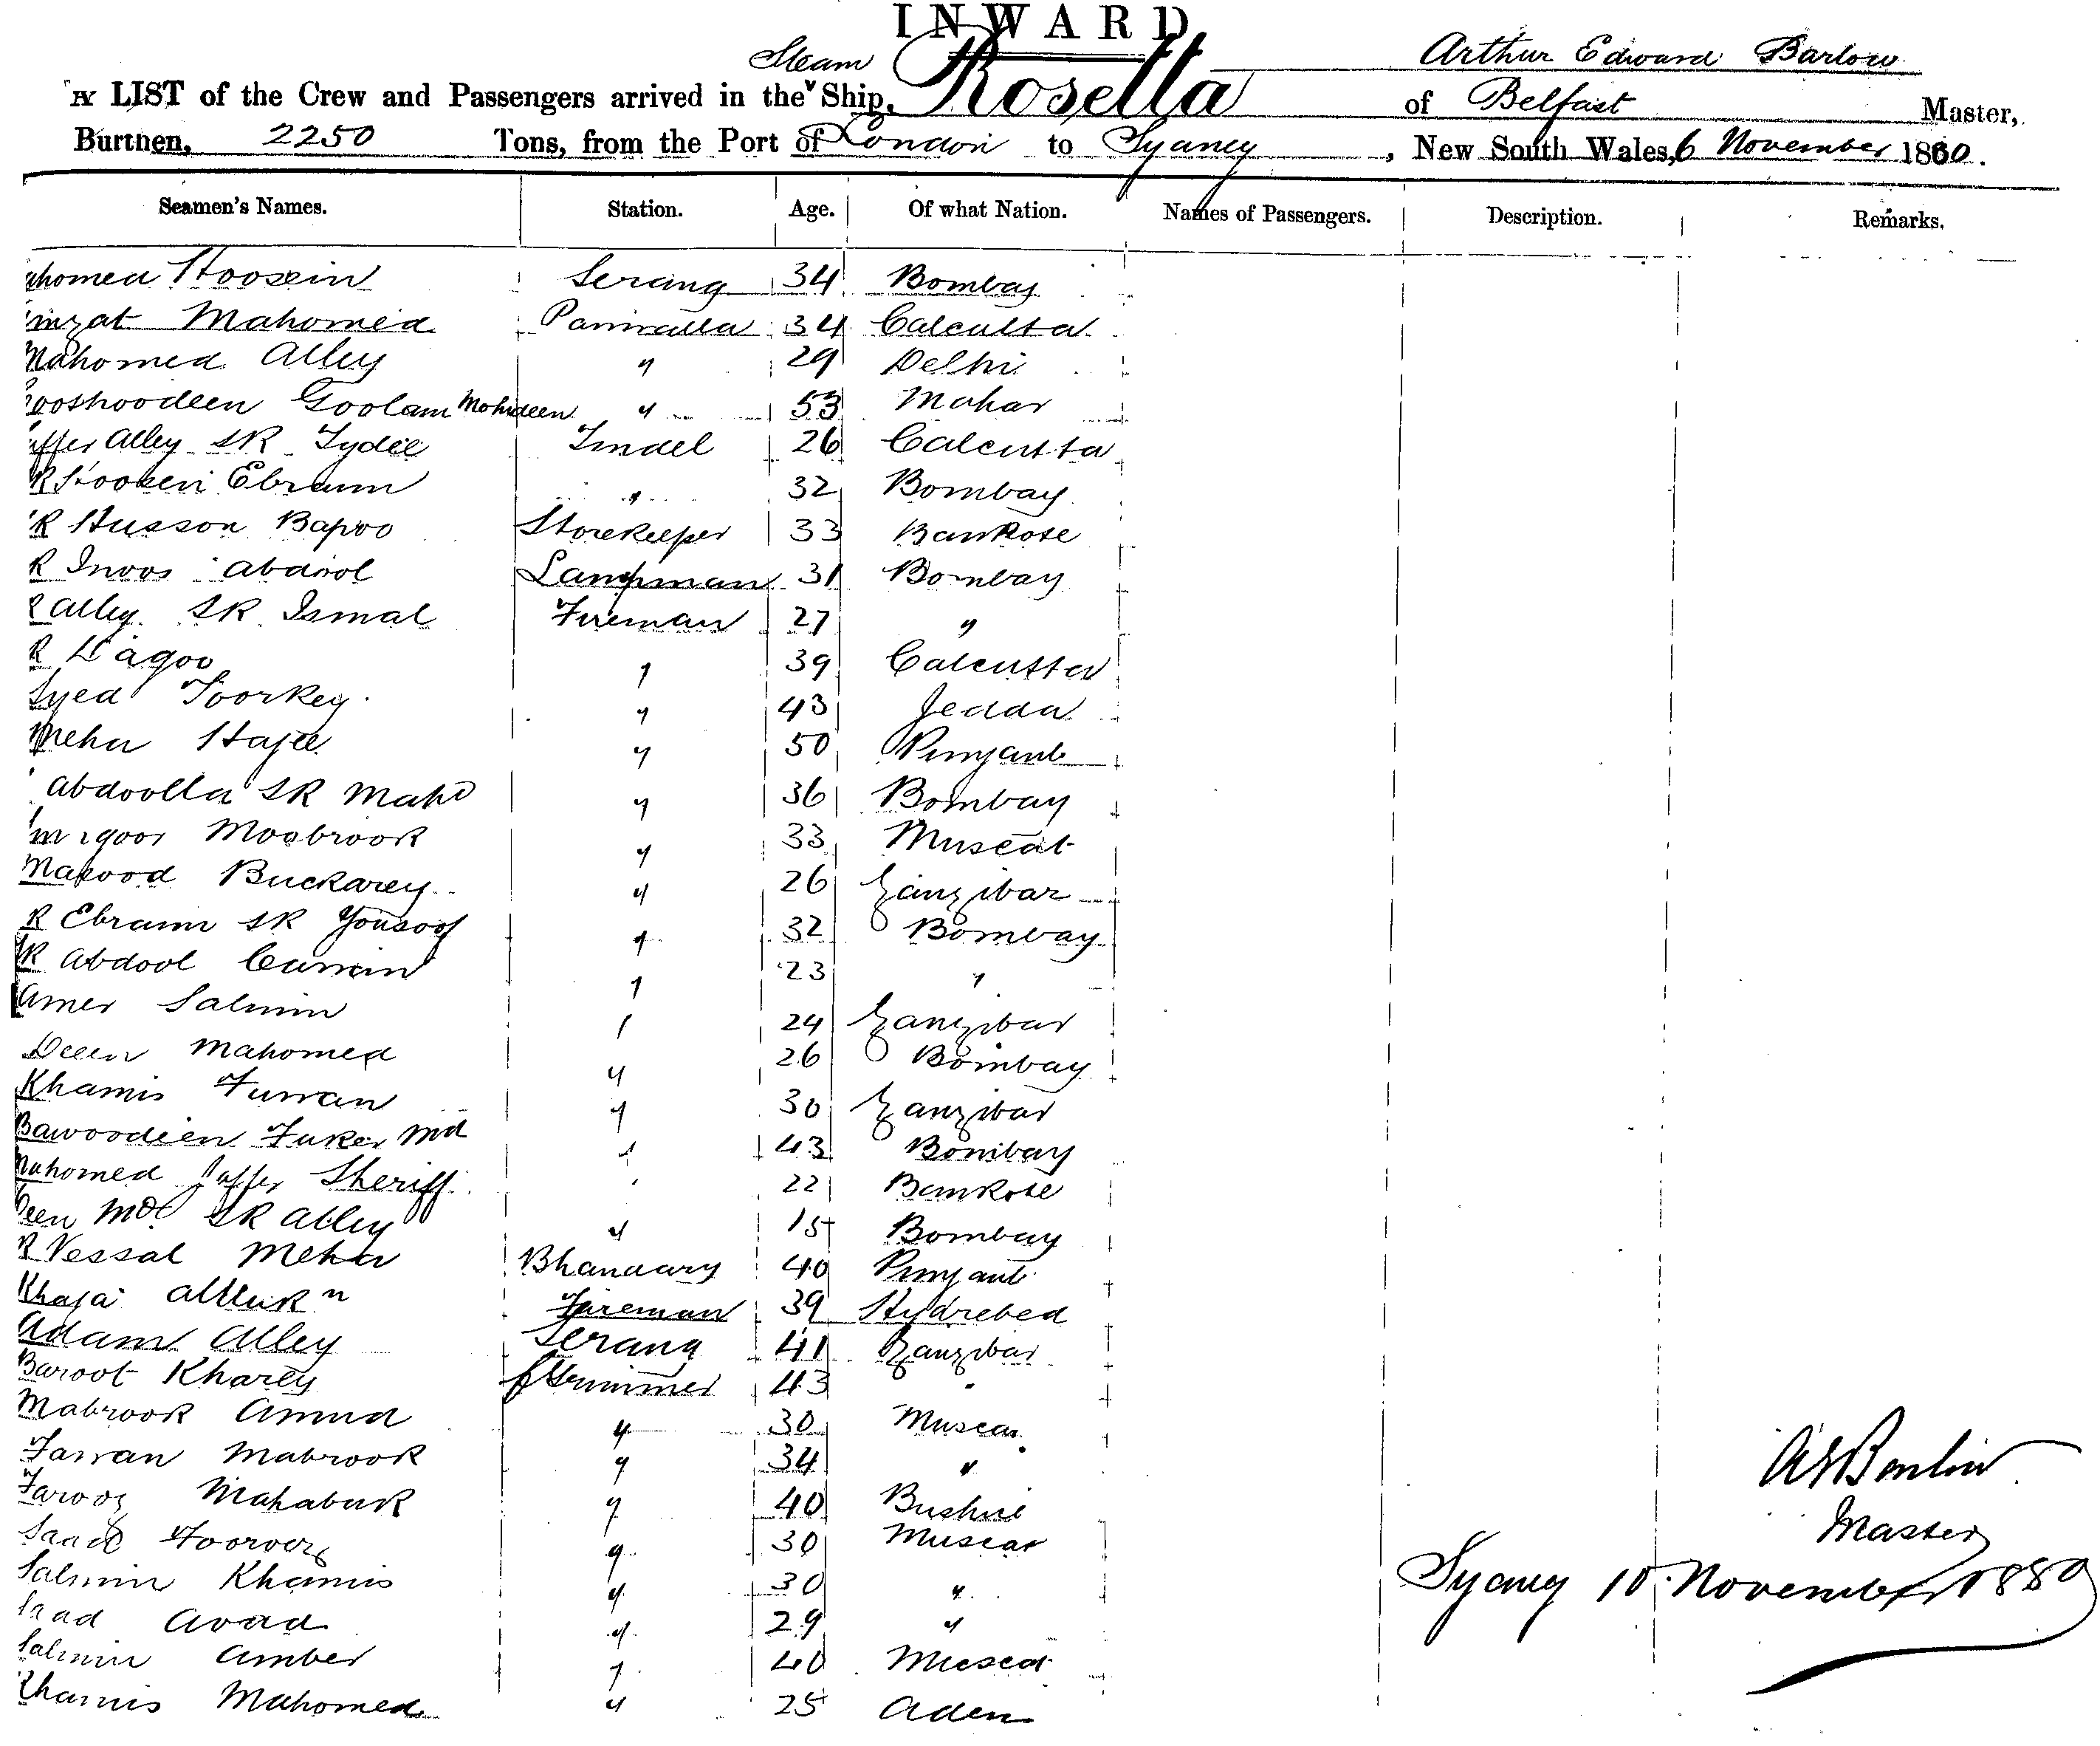 INWARD
A LIST of the Crew and Passengers arrived in the Steam Ship, Rosetta Arthur Edward Barlow of Belfast Master,
Burthen, 2250 Tons, from the Port of London to Sydney, New South Wales, 6 November 1880.
Seamen's Names. Station. Age. Of what Nation. Names of Passengers. Description. Remarks.
ahomed Hoosein Serang 34 Bombay
Mahomed 34 Calcutta
Mahomed Alley " 29 Delhi
Goolam Mohideen " 53 Mahar
Alley SK Tindel 26 Calcutta
Ebraim " 32 Bombay
K Husson Bapoo Storekeeper 33 Bankote
K Abdool Lampman 31 Bombay
Alley SK Ismal Fireman 27 "
K Dagoo " 39 Calcutta
Syed Toorkey " 43 Jedda
Meha Hajee " 50 Punjaub
Abdoolla SK Mahd " 36 Bombay
Moobrook " 33 Muscat
Buckarey " 26 Zanzibar
K Ebraim SK Yousoof " 32 Bombay
K Abdool Carrim " 23 "
Amer Salmin " 24 Zanzibar
Deen Mahomed " 26 Bombay
Khamis Furran " 30 Zanzibar
Bawoodeen Fuker Md " 43 Bombay
Mahomed Jaffer Sheriff " 22 Bankote
een Md SK Alley " 18 Bombay
K Vessal Meha Bhandary 40 Punjaub
Khaja Fireman 39 Hydrebed
Adam Alley Serang 41 Zanzibar
Baroot Kharey Trimmer 43 "
Mabrook 30 Muscat
Farran Mabrook " 34 "
Farooz Mahabuk " 40 Bushire
Saad Foorooz " 30 Muscat
Salmin Khamis " 30 "
Saad Avad " 29 "
Salmin Amber " 40 Muscat
Khamis Mahomed " 25 Aden
AEBarlow
Master
Sydney 10 November 1880